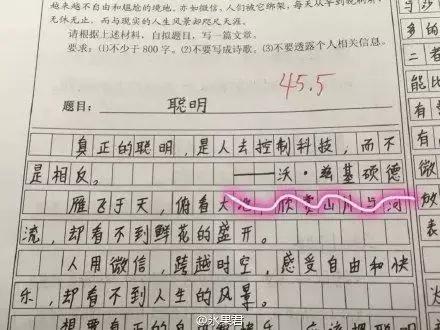 越来越不自由和尴尬的境地。亦如微信,人们被它绑架,每天从早到晚刷屏,
无休无止。而与现实的人生风景却咫尺天涯。
请根据上述材料,自拟题目,写一篇文章。
要求:(1)不少于800字。(2)不要写成诗歌。(3)不要透露个人相关信息。
45.5
题目: 聪明
真正的聪明,是人去控制科技,而不
是相反。 ——沃·兹基硕德
雁飞于天,俯看大地,欣赏山川与河
流,却看不到鲜花的盛开。
人用微信,跨越时空,感受自由和快
乐,却看不到人生的风景。
想要真正
多的
二者
能比
@水果君